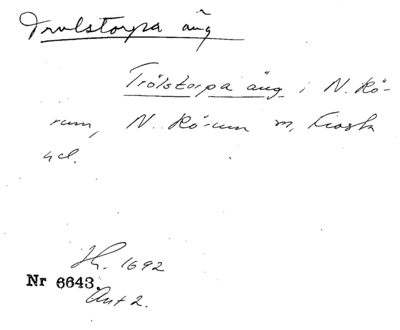 Trulstorpa äng
Trölstorpa äng i N. Rö-
rum, N. Rörum sn, Frosta
hd.
Jb. 1692
Nr 6643.
Ant 2.